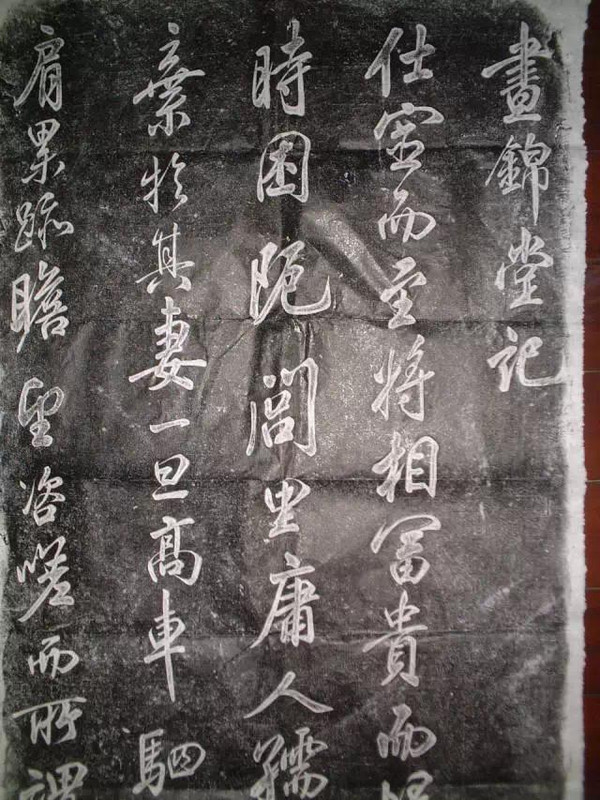 晝錦堂記
仕宦而至將相冨貴而
時困阨閭里庸人孺
棄於其妻一旦高車駟
肩累跡瞻望咨嗟而所謂